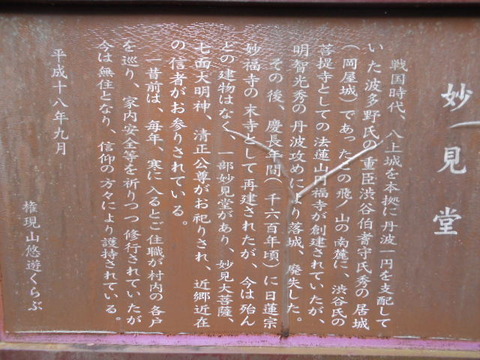 妙見堂
戦国時代、八上城を本拠に丹波一円を支配して
いた波多野氏の重臣渋谷伯耆守氏秀の居城
(岡屋城)であったこの飛ノ山の南麓に、渋谷氏の
菩提寺としての法蓮山円福寺が創建されていたが、
明智光秀の丹波攻めにより落城、廃失した。
その後、慶長年間(千六百年頃)に日蓮宗
妙福寺の末寺として再建されたが、今は殆ん
どの建物はなく、一部妙見堂があり、妙見大菩薩、
七面大明神、清正公尊がお祀りされ、近郷近在
の信者がお参りされている。
一昔前は、毎年、寒に入るとご住職が村内の各戸
を巡り、家内安全等を祈りつつ修行されていたが
今は無住となり、信仰の方々により護持されている。
平成十八年九月
権現山悠遊くらぶ